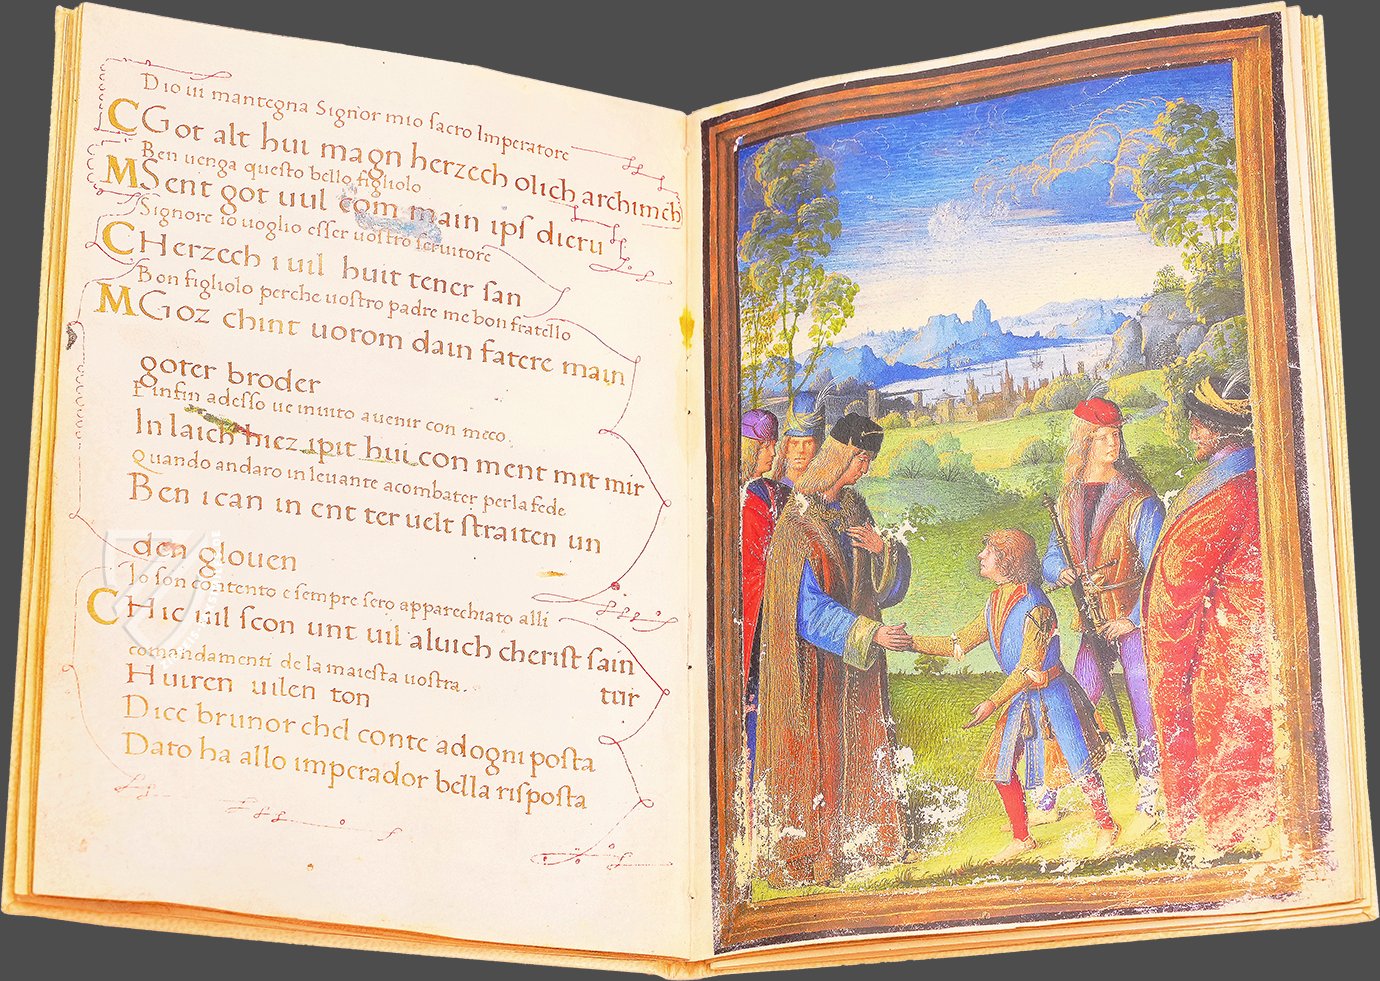 Dio ui mantegna Signor mio sacro Imperatore
C Got alt hui magn herzech olich archinch
Ben uenga questo bello figliolo
M Sent got uul com main ips dieru
Signore io uoglio esser uostro seruitore
C Herzech i uil huit tener san
Bon figliolo perche uostro padre me bon fratello
M Goz chint uorom dain fatere main
goter broder
Pinfin adesso ue inuito auenir con meco.
In laich hiez ipit hui con ment mit mir
Quando andaro in leuante acombater perla fede
Ben i can in ent ter uelt straiten un
den glouen
Io son contento e sempre sero apparechiato alli
C Hic uil scon unt uil aluich cherist sain
comandamenti de la maiesta uostra.
Huiren uilen ton tur
Dice brunor chel conte adogni posta
Dato ha allo imperador bella risposta